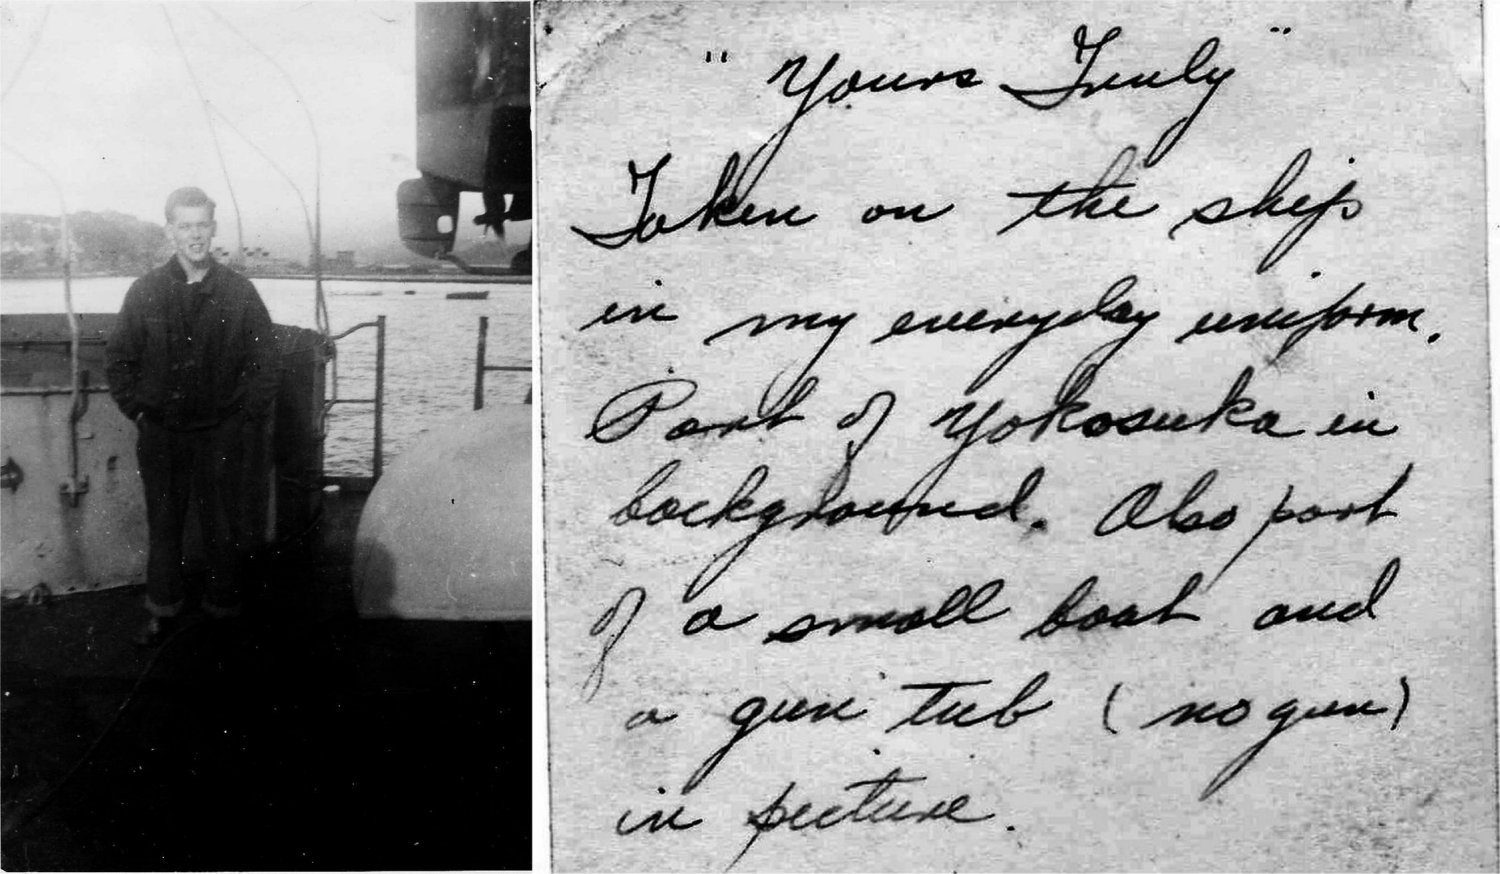 "Yours Truly"
Taken on the ship
in my everyday uniform.
Part of Yokosuka in
background. Also part
of a small boat and
a gun tub (no gun)
in picture.